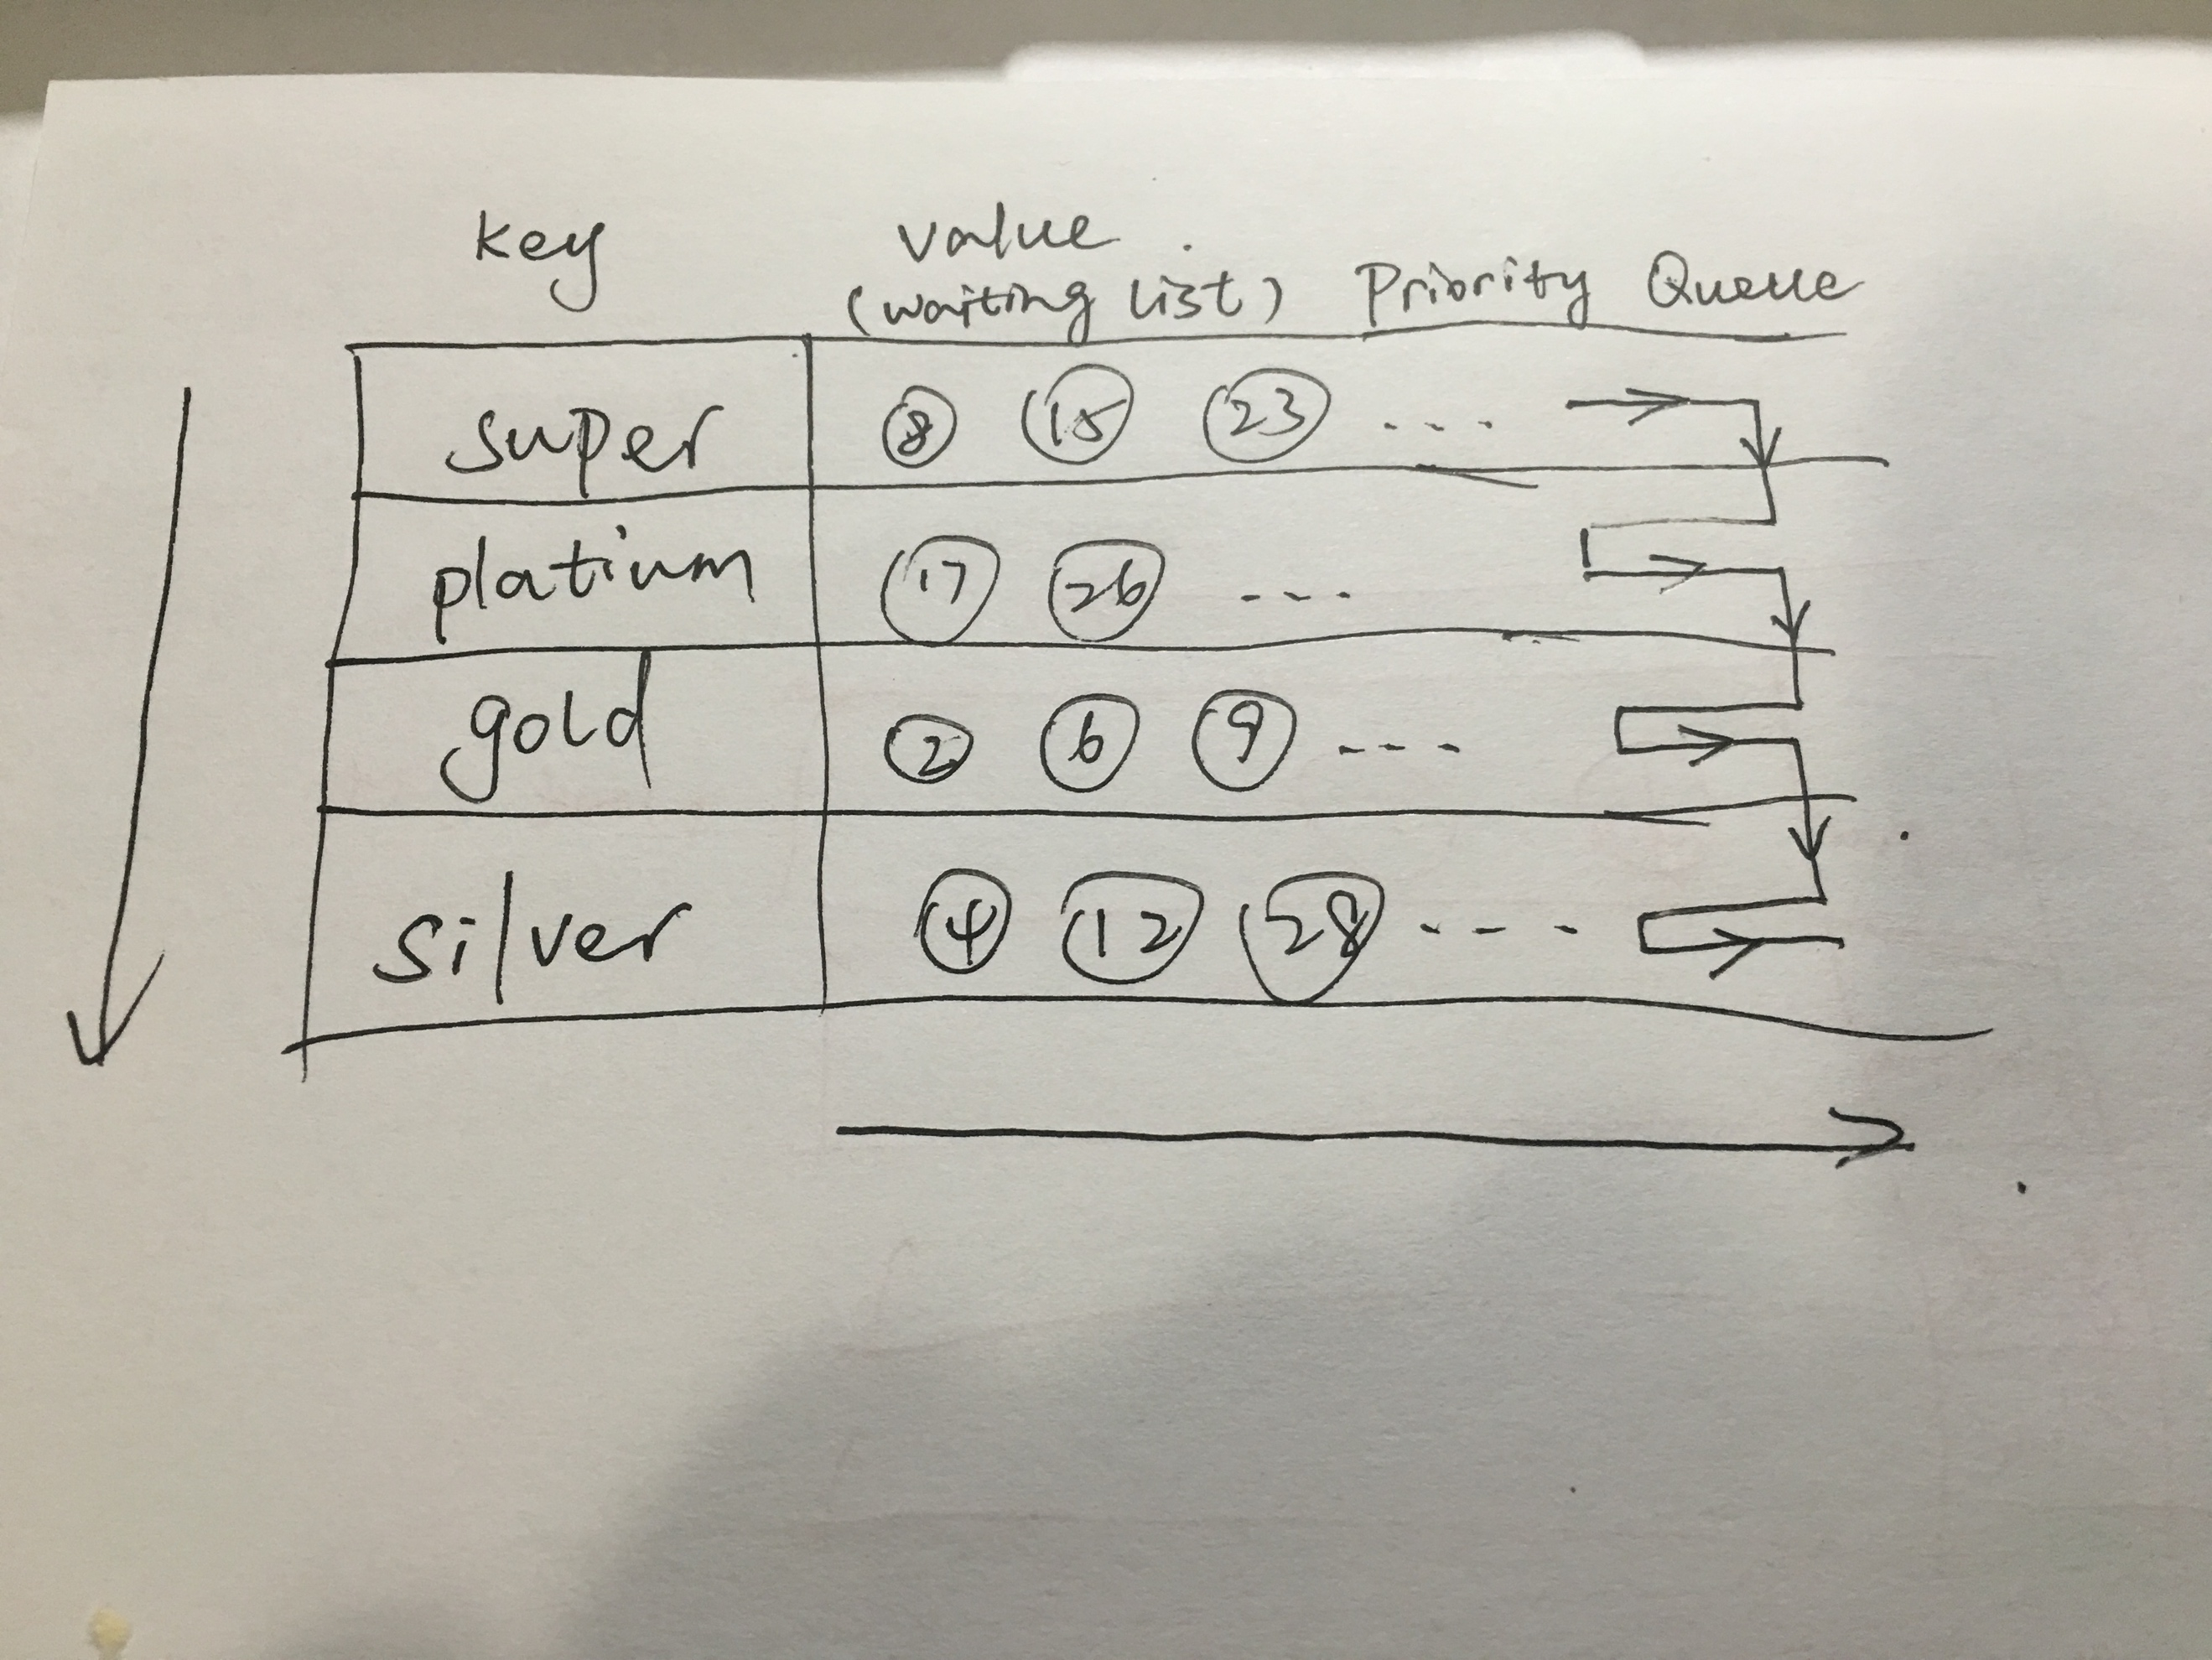 key value
(waiting list) Priority Queue
super 8 15 23 ...
platinum 17 26 ---
gold 2 6 9 ----
silver 4 12 28 ----